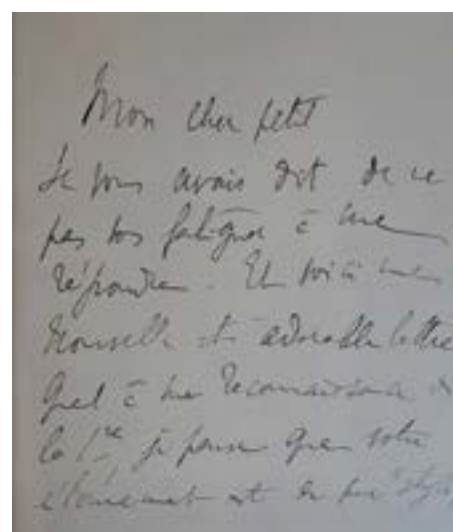 Mon cher petit
Je vous avais dit de ne
pas vous fatiguer à me
répondre. Et voici une
nouvelle et adorable lettre
reconnaissance
la 1re je pense que votre
est